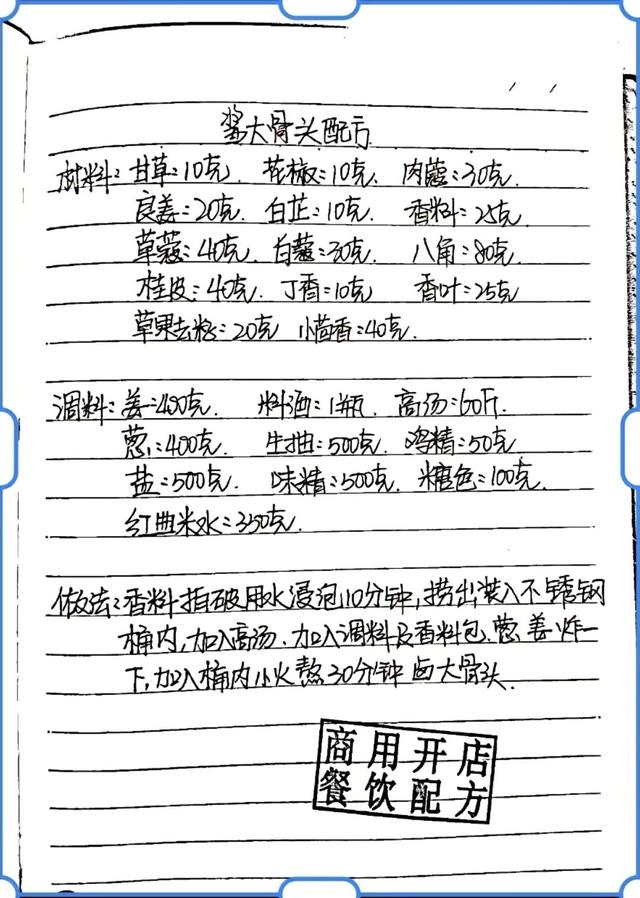 酱大骨头配方
材料:甘草:10克. 花椒:10克. 肉蔻:30克.
良姜:20克. 白芷:10克. 香料:25克
草蔻:40克. 白蔻:30克. 八角:80克.
桂皮:40克. 丁香:10克 香叶:25克
草果去籽:20克 小茴香:40克.
调料:姜:400克. 料酒:1瓶. 高汤:60斤.
葱:400克. 生抽:500克. 鸡精:50克
盐:500克. 味精:500克. 糖色:100克.
红曲米水:350克.
做法:香料拍破用水浸泡10分钟,捞出装入不锈钢
桶内,加入高汤.加入调料及香料包.葱.姜炸一
下,加入桶内小火熬30分钟卤大骨头.
商用开店
餐饮配方